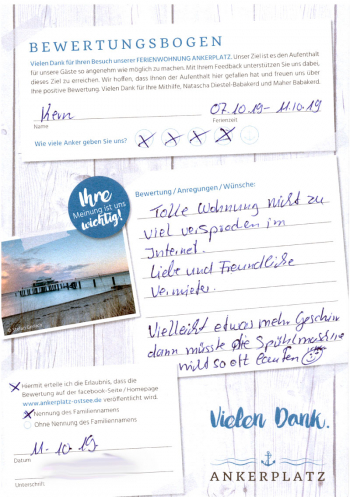 BEWERTUNGSBOGEN
Vielen Dank für Ihren Besuch unserer FERIENWOHNUNG ANKERPLATZ. Unser Ziel ist es den Aufenthalt
für unsere Gäste so angenehm wie möglich zu machen. Mit Ihrem Feedback unterstützen Sie uns dabei,
dieses Ziel zu erreichen. Wir hoffen, dass Ihnen der Aufenthalt hier gefallen hat und freuen uns über
ihre positive Bewertung. Vielen Dank für Ihre Mithilfe, Natascha Diestel-Babakerd und Maher Babakerd.
07.10.19-11.10.19
Name
Ferienzeit
Wie viele Anker geben Sie uns?
Ihre
Meinung ist uns
wichtig!
Bewertung / Anregungen / Wünsche:
Tolle Wohnung nicht zu
viel versprochen im
Internet.
Liebe und Freundliche
Vermieter.
Vielleicht etwas mehr Geschirr
dann müsste die Spühlmaschine
nicht so oft laufen
Hiermit erteile ich die Erlaubnis, dass die
Bewertung auf der facebook-Seite / Homepage
www.ankerplatz-ostsee.de veröffentlicht wird.
Nennung des Familiennamens
Ohne Nennung des Familiennamens
11.10.19
Datum
Unterschrift
Vielen Dank.
ANKERPLATZ